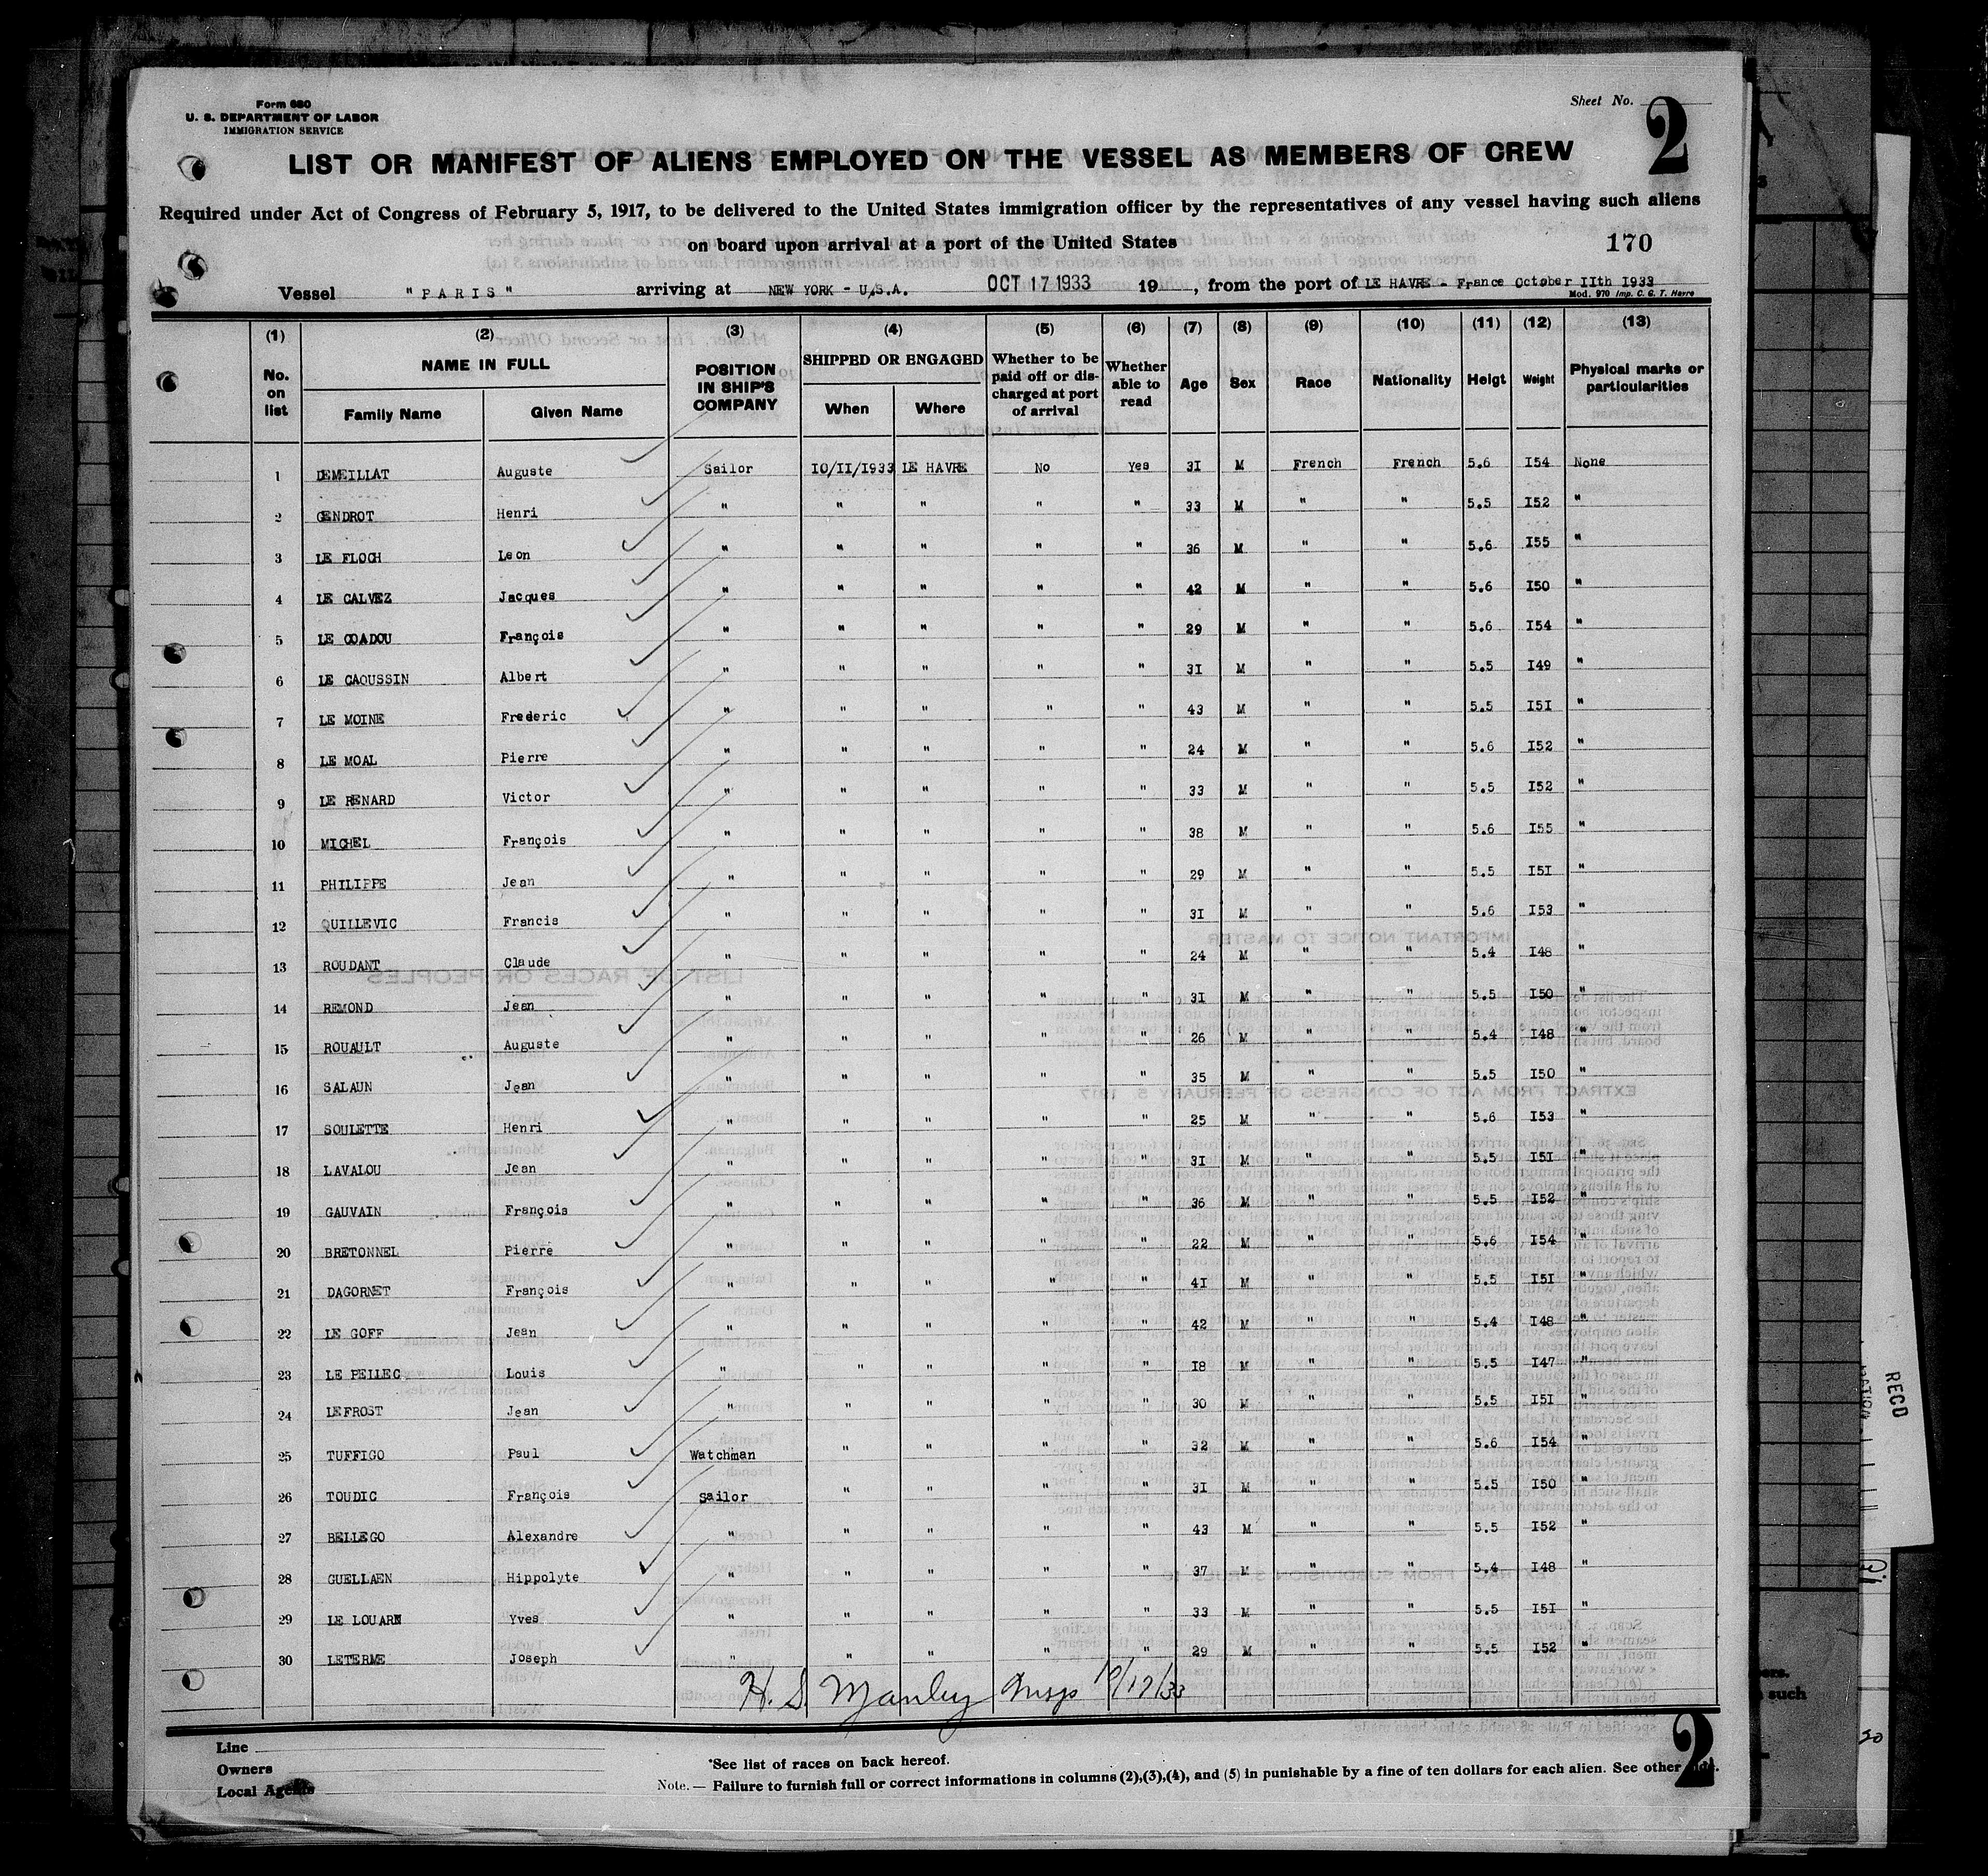 Form 680
U. S. DEPARTMENT OF LABOR
IMMIGRATION SERVICE
Sheet No. 2
LIST OR MANIFEST OF ALIENS EMPLOYED ON THE VESSEL AS MEMBERS OF CREW
Required under Act of Congress of February 5, 1917, to be delivered to the United States immigration officer by the representatives of any vessel having such aliens
on board upon arrival at a port of the United States
170
Vessel "PARIS" arriving at NEW YORK - U.S.A. OCT 17 1933 19 , from the port of LE HAVRE - France October IIth I933
Mod. 970 Imp. C. G. T. Havre
(1) (2) (3) (4) (5) (6) (7) (8) (9) (10) (11) (12) (13)
No. on list NAME IN FULL Family Name Given Name POSITION IN SHIP'S COMPANY SHIPPED OR ENGAGED When Where Whether to be paid off or discharged at port of arrival Whether able to read Age Sex Race Nationality Heigt Weight Physical marks or particularities
1 DEMEILLAT Auguste Sailor IO/II/I933 LE HAVRE No Yes 3I M French French 5.6 I54 None
2 GENDROT Henri " " " " " 33 M " " 5.5 I52 "
3 LE FLOCH Leon " " " " " 36 M " " 5.6 I55 "
4 LE CALVEZ Jacques " " " " " 42 M " " 5.6 I50 "
5 LE COADOU François " " " " " 29 M " " 5.6 I54 "
6 LE CAOUSSIN Albert " " " " " 3I M " " 5.5 I49 "
7 LE MOINE Frederic " " " " " 43 M " " 5.5 I5I "
8 LE MOAL Pierre " " " " " 24 M " " 5.6 I52 "
9 LE RENARD Victor " " " " " 33 M " " 5.5 I52 "
10 MICHEL François " " " " " 38 M " " 5.6 I55 "
11 PHILIPPE Jean " " " " " 29 M " " 5.5 I5I "
12 QUILLEVIC Francis " " " " " 3I M " " 5.6 I53 "
13 ROUDANT Claude " " " " " 24 M " " 5.4 I48 "
14 REMOND Jean " " " " " 3I M " " 5.5 I50 "
15 ROUAULT Auguste " " " " " 26 M " " 5.4 I48 "
16 SALAUN Jean " " " " " 35 M " " 5.5 I50 "
17 SOULETTE Henri " " " " " 25 M " " 5.6 I53 "
18 LAVALOU Jean " " " " " 3I M " " 5.5 I5I "
19 GAUVAIN François " " " " " 36 M " " 5.5 I52 "
20 BRETONNEL Pierre " " " " " 22 M " " 5.6 I54 "
21 DAGORNET François " " " " " 4I M " " 5.5 I5I "
22 LE GOFF Jean " " " " " 42 M " " 5.4 I48 "
23 LE PELLEC Louis " " " " " I8 M " " 5.5 I47 "
24 LEFROST Jean " " " " " 30 M " " 5.5 I5I "
25 TUFFIGO Paul Watchman " " " " 32 M " " 5.6 I54 "
26 TOUDIC François Sailor " " " " 3I M " " 5.5 I50 "
27 BELLEGO Alexandre " " " " " 43 M " " 5.5 I52 "
28 GUELLAEN Hippolyte " " " " " 37 M " " 5.4 I48 "
29 LE LOUARN Yves " " " " " 33 M " " 5.5 I5I "
30 LETERME Joseph " " " " " 29 M " " 5.5 I52 "
H. S. Manley Insp 10/17/33
Line
Owners
Local Agents
*See list of races on back hereof.
Note. — Failure to furnish full or correct informations in columns (2),(3),(4), and (5) in punishable by a fine of ten dollars for each alien. See other
2
RECD